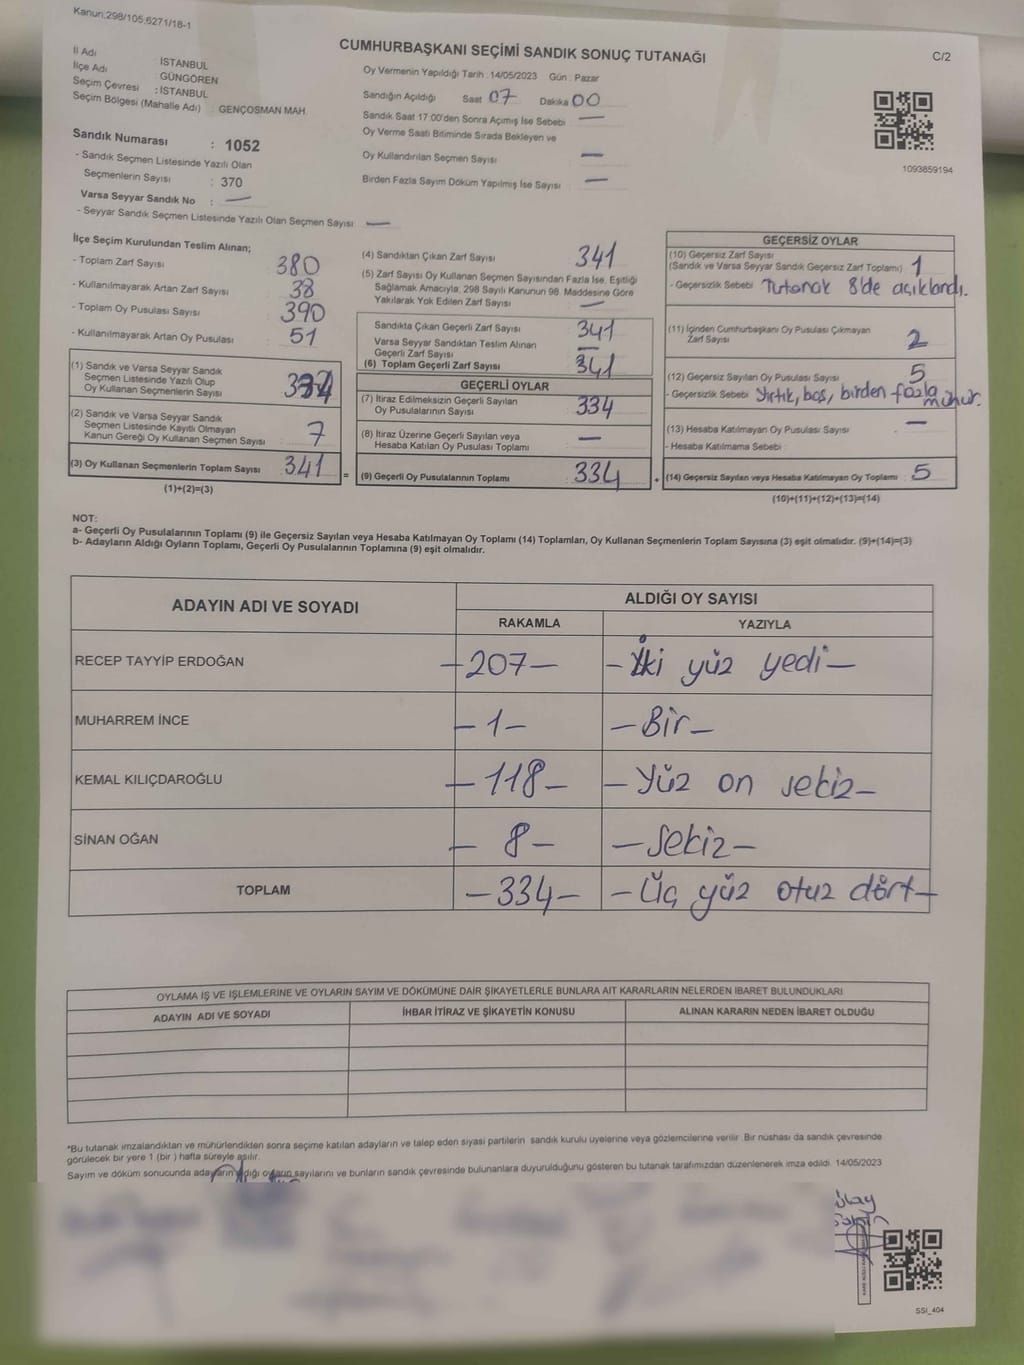 Kanun:298/105,6271/18-1
CUMHURBAŞKANI SEÇİMİ SANDIK SONUÇ TUTANAĞI
C/2
İl Adı : İSTANBUL
İlçe Adı GÜNGÖREN
Seçim Çevresi : İSTANBUL
Seçim Bölgesi (Mahalle Adı) : GENÇOSMAN MAH.
Sandık Numarası : 1052
- Sandık Seçmen Listesinde Yazılı Olan
Seçmenlerin Sayısı : 370
Varsa Seyyar Sandık No : —
- Seyyar Sandık Seçmen Listesinde Yazılı Olan Seçmen Sayısı —
Oy Vermenin Yapıldığı Tarih : 14/05/2023 Gün : Pazar
Sandığın Açıldığı Saat 07 Dakika 00
Sandık Saat 17:00'den Sonra Açımış İse Sebebi —
Oy Verme Saati Bitiminde Sırada Bekleyen ve
Oy Kullandırılan Seçmen Sayısı —
Birden Fazla Sayım Döküm Yapılmış İse Sayısı —
1093859194
İlçe Seçim Kurulundan Teslim Alınan;
- Toplam Zarf Sayısı 380
- Kullanılmayarak Artan Zarf Sayısı 38
- Toplam Oy Pusulası Sayısı 390
- Kullanılmayarak Artan Oy Pusulası 51
(1) Sandık ve Varsa Seyyar Sandık
Seçmen Listesinde Yazılı Olup
Oy Kullanan Seçmenlerin Sayısı 334
(2) Sandık ve Varsa Seyyar Sandık
Seçmen Listesinde Kayıtlı Olmayan
Kanun Gereği Oy Kullanan Seçmen Sayısı 7
(3) Oy Kullanan Seçmenlerin Toplam Sayısı 341 =
(1)+(2)=(3)
(4) Sandıktan Çıkan Zarf Sayısı 341
(5) Zarf Sayısı Oy Kullanan Seçmen Sayısından Fazla İse, Eşitliği
Sağlamak Amacıyla; 298 Sayılı Kanunun 98. Maddesine Göre
Yakılarak Yok Edilen Zarf Sayısı —
Sandıkta Çıkan Geçerli Zarf Sayısı 341
Varsa Seyyar Sandıktan Teslim Alınan
Geçerli Zarf Sayısı —
(6) Toplam Geçerli Zarf Sayısı 341
GEÇERLİ OYLAR
(7) İtiraz Edilmeksizin Geçerli Sayılan
Oy Pusulalarının Sayısı 334
(8) İtiraz Üzerine Geçerli Sayılan veya
Hesaba Katılan Oy Pusulası Toplamı —
(9) Geçerli Oy Pusulalarının Toplamı 334
GEÇERSİZ OYLAR
(10) Geçersiz Zarf Sayısı
(Sandık ve Varsa Seyyar Sandık Geçersiz Zarf Toplamı) 1
- Geçersizlik Sebebi Tutanak 8'de açıklandı.
(11) İçinden Cumhurbaşkanı Oy Pusulası Çıkmayan
Zarf Sayısı 2
(12) Geçersiz Sayılan Oy Pusulası Sayısı 5
- Geçersizlik Sebebi Yırtık, boş, birden fazla
mühür.
(13) Hesaba Katılmayan Oy Pusulası Sayısı —
- Hesaba Katılmama Sebebi :
(14) Geçersiz Sayılan veya Hesaba Katılmayan Oy Toplamı 5
(10)+(11)+(12)+(13)=(14)
NOT:
a- Geçerli Oy Pusulalarının Toplamı (9) ile Geçersiz Sayılan veya Hesaba Katılmayan Oy Toplamı (14) Toplamları, Oy Kullanan Seçmenlerin Toplam Sayısına (3) eşit olmalıdır. (9)+(14)=(3)
b- Adayların Aldığı Oyların Toplamı, Geçerli Oy Pusulalarının Toplamına (9) eşit olmalıdır.
ADAYIN ADI VE SOYADI
ALDIĞI OY SAYISI
RAKAMLA YAZIYLA
RECEP TAYYİP ERDOĞAN —207— —İki yüz yedi—
MUHARREM İNCE —1— —Bir—
KEMAL KILIÇDAROĞLU —118— —Yüz on sekiz—
SİNAN OĞAN —8— —Sekiz—
TOPLAM —334— —Üç yüz otuz dört—
OYLAMA İŞ VE İŞLEMLERİNE VE OYLARIN SAYIM VE DÖKÜMÜNE DAİR ŞİKAYETLERLE BUNLARA AİT KARARLARIN NELERDEN İBARET BULUNDUKLARI
ADAYIN ADI VE SOYADI İHBAR İTİRAZ VE ŞİKAYETİN KONUSU ALINAN KARARIN NEDEN İBARET OLDUĞU
*Bu tutanak imzalandıktan ve mühürlendikten sonra seçime katılan adayların ve talep eden siyasi partilerin sandık kurulu üyelerine veya gözlemcilerine verilir. Bir nüshası da sandık çevresinde
görülecek bir yere 1 (bir ) hafta süreyle asılır.
Sayım ve döküm sonucunda adayların aldığı oyların sayılarını ve bunların sandık çevresinde bulunanlara duyurulduğunu gösteren bu tutanak tarafımızdan düzenlenerek imza edildi. 14/05/2023
SSI_404